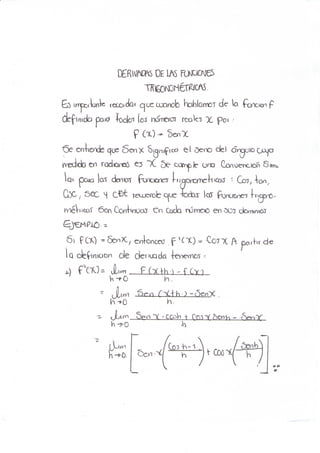 DERIVADAS DE LAS FUNCIONES
TRIGONOMÉTRICAS.
Es importante recordar que cuando hablamos de la función f
definida para todos los números reales x por:
f (x) = Sen x
Se entiende que Sen x significa el seno del ángulo cuya
medida en radianes es x. Se cumple una Convención Simi
lar para las demás funciones trigonométricas: Cos, tan,
Csc, Sec y Cot recuerde que todas las funciones trigono-
métricas son Continuas en Cada número en sus dominios
EJEMPLO =
Si f(x) = Senx, entonces f '(x) = Cos x A partir de
la definición de derivada tenemos:
f'(x) = Lim f (x+h) - f(x)
h→0 h.
= Lim Sen (x+h) - Sen x.
h→0 h.
= Lim Sen x · cosh + Cos x Senh - Sen x
h→0 h
= Lim [ Sen x ( Cos h-1 / h ) + Cos x ( Senh / h ) ]
h→0